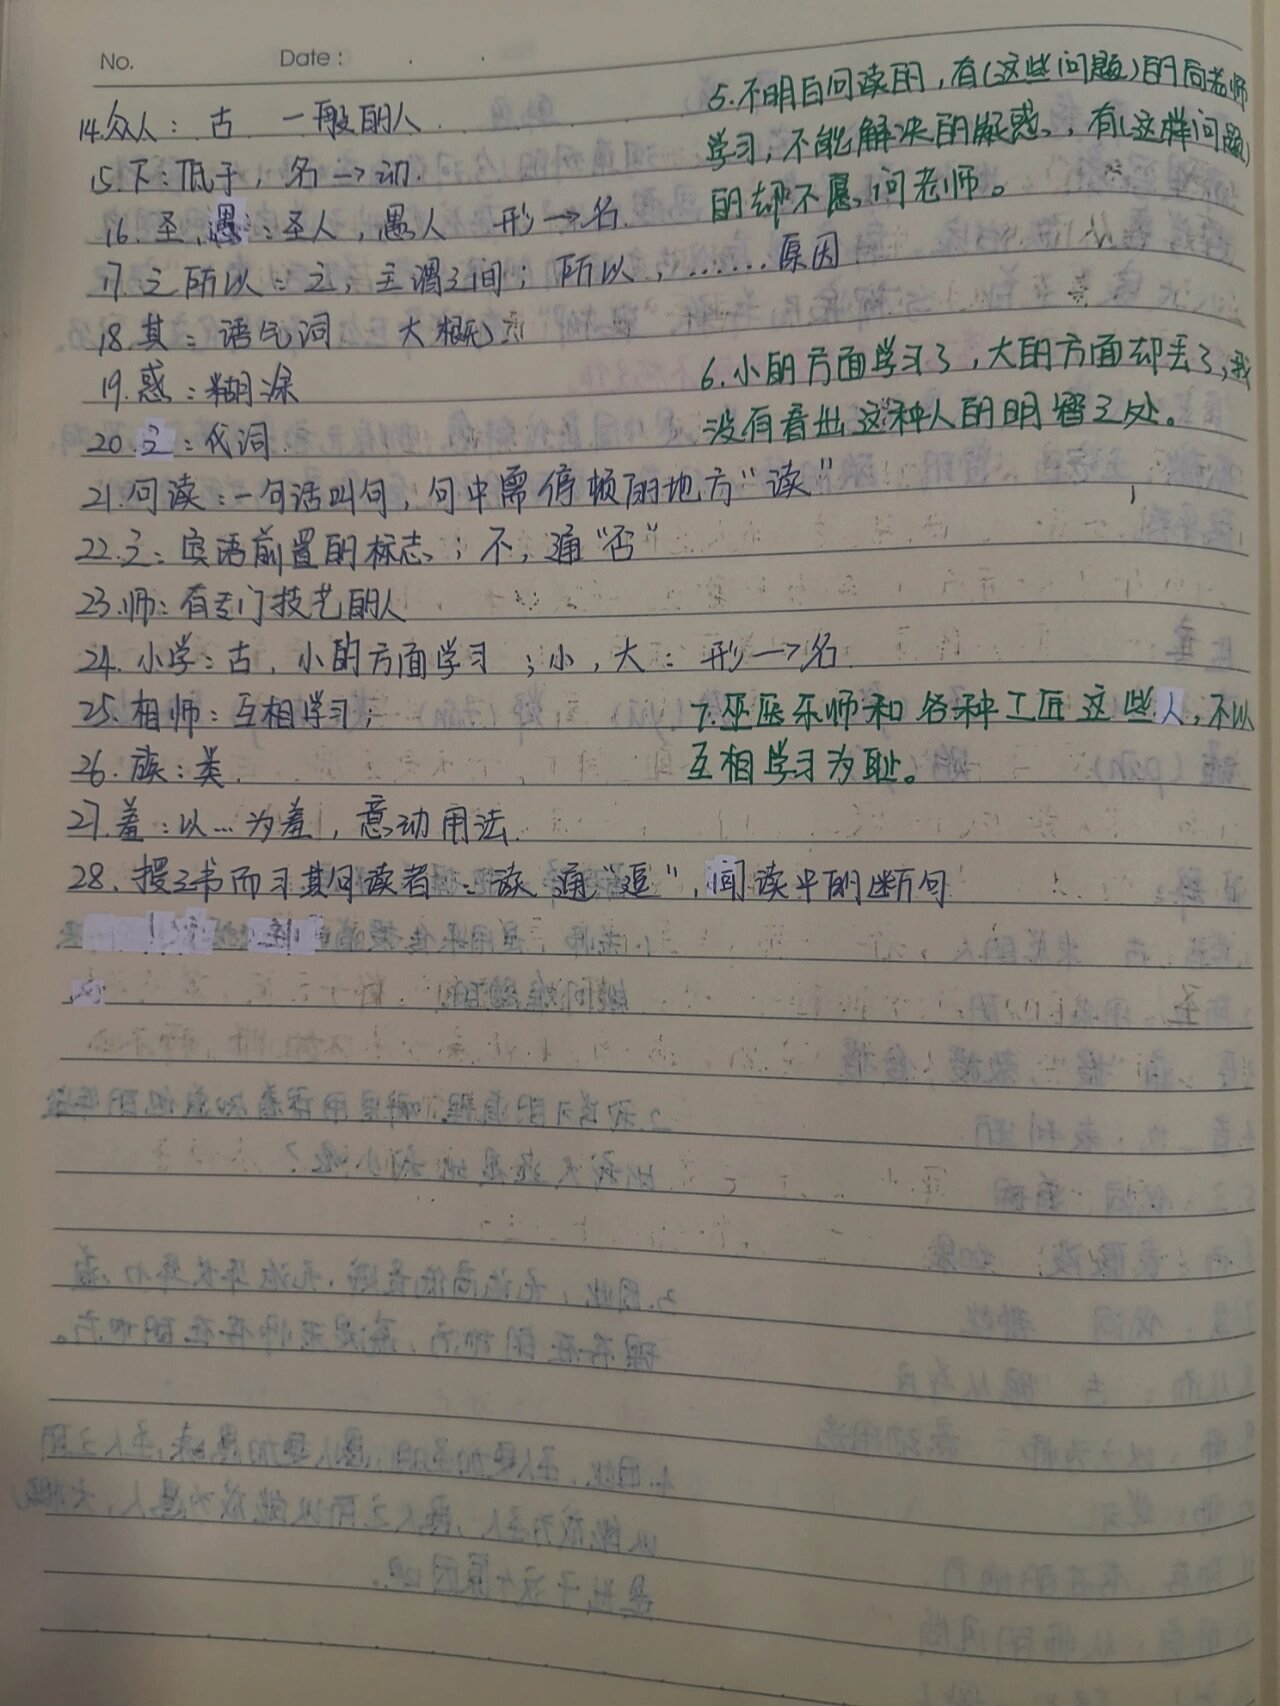 No. Date:
14.众人：古 一般的人
15.下：低于，名→动.
16.圣，愚：圣人，愚人 形→名.
17.之所以：之，主谓之间；所以，……原因
18.其：语气词 大概
19.惑：糊涂
20.之：代词
21.句读：一句话叫句，句中需停顿的地方"读"
22.之：宾语前置的标志；不，通"否"
23.师：有专门技艺的人
24.小学：古，小的方面学习；小，大：形→名
25.相师：互相学习；
26.族：类
27.羞：以…为羞，意动用法.
28.授之书而习其句读者：读 通"逗"，阅读中的断句
5.不明白问读的，有(这些问题)的向老师
学习，不能解决的疑惑，有(这样问题)
的却不愿问老师。
6.小的方面学习了，大的方面却丢了，我
没有看出这种人的明智之处。
7.巫医乐师和各种工匠这些人，不以
互相学习为耻。